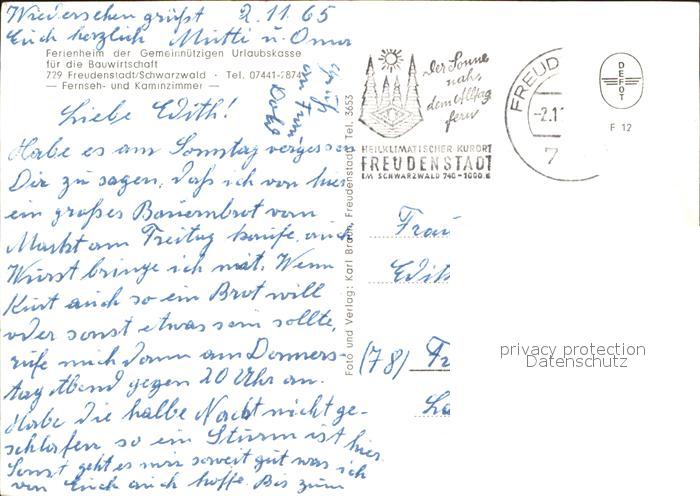 Wiedersehen grüßt 2.11.65
Euch herzlich Mutti u. Omar
Ferienheim der Gemeinnützigen Urlaubskasse
für die Bauwirtschaft
729 Freudenstadt/Schwarzwald · Tel. 07441-2874
— Fernseh- und Kaminzimmer —
Gruß
Liebe Edith!
Habe es am Sonntag vergessen
Dir zu sagen, daß ich von hier
ein großes Bauernbrot vom
Markt am Freitag kaufe, auch
Wurst bringe ich mit. Wenn
Kurt auch so ein Brot will
oder sonst etwas sein sollte,
rufe mich dann am Donners-
tag Abend gegen 20 Uhr an.
Habe die halbe Nacht nicht ge-
schlafen so ein Sturm ist hier
Sonst geht es mir soweit gut was ich
von Euch auch hoffe. Bis zum
Foto und Verlag: Karl Braun, Freudenstadt, Tel. 3653
Der Sonne
nah,
dem Alltag
fern
HEILKLIMATISCHER KURORT
FREUDENSTADT
IM SCHWARZWALD 740-1000 M
FREUD
-2.1
7
DEFOT
F 12
Frau
Edit
(78) Fr
privacy protection
Datenschutz